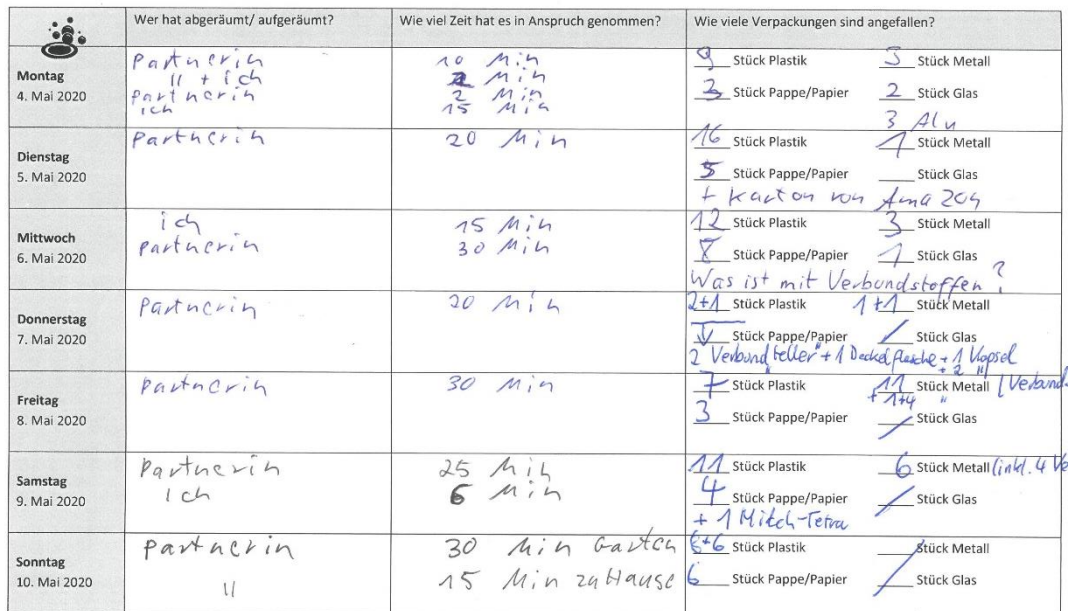 Wer hat abgeräumt/ aufgeräumt? Wie viel Zeit hat es in Anspruch genommen? Wie viele Verpackungen sind angefallen?
Montag
4. Mai 2020
Partnerin 10 Min
" + ich 2 Min
partnerin 2 Min
ich 15 Min
9 Stück Plastik Stück Metall
3 Stück Pappe/Papier 2 Stück Glas
3 Alu
Dienstag
5. Mai 2020
Partnerin 20 Min
16 Stück Plastik 1 Stück Metall
5 Stück Pappe/Papier ___ Stück Glas
+ Karton von Amazon
Mittwoch
6. Mai 2020
ich 15 Min
partnerin 30 Min
12 Stück Plastik 3 Stück Metall
8 Stück Pappe/Papier 1 Stück Glas
Was ist mit Verbundstoffen?
Donnerstag
7. Mai 2020
Partnerin 20 Min
2+1 Stück Plastik 1+1 Stück Metall
Stück Pappe/Papier / Stück Glas
2 Verbund"teller" + 1 Deckel flasche + 1 Kapsel
+ 2 "
Freitag
8. Mai 2020
Partnerin 30 Min
7 Stück Plastik 11 Stück Metall (Verbund
+ 1+4 "
3 Stück Pappe/Papier / Stück Glas
Samstag
9. Mai 2020
Partnerin 25 Min
Ich 6 Min
11 Stück Plastik 6 Stück Metall (inkl. 4 Ve
4 Stück Pappe/Papier / Stück Glas
+ 1 Milch-Tetra
Sonntag
10. Mai 2020
partnerin 30 Min Garten
" 15 Min zuHause
6+6 Stück Plastik / Stück Metall
6 Stück Pappe/Papier / Stück Glas